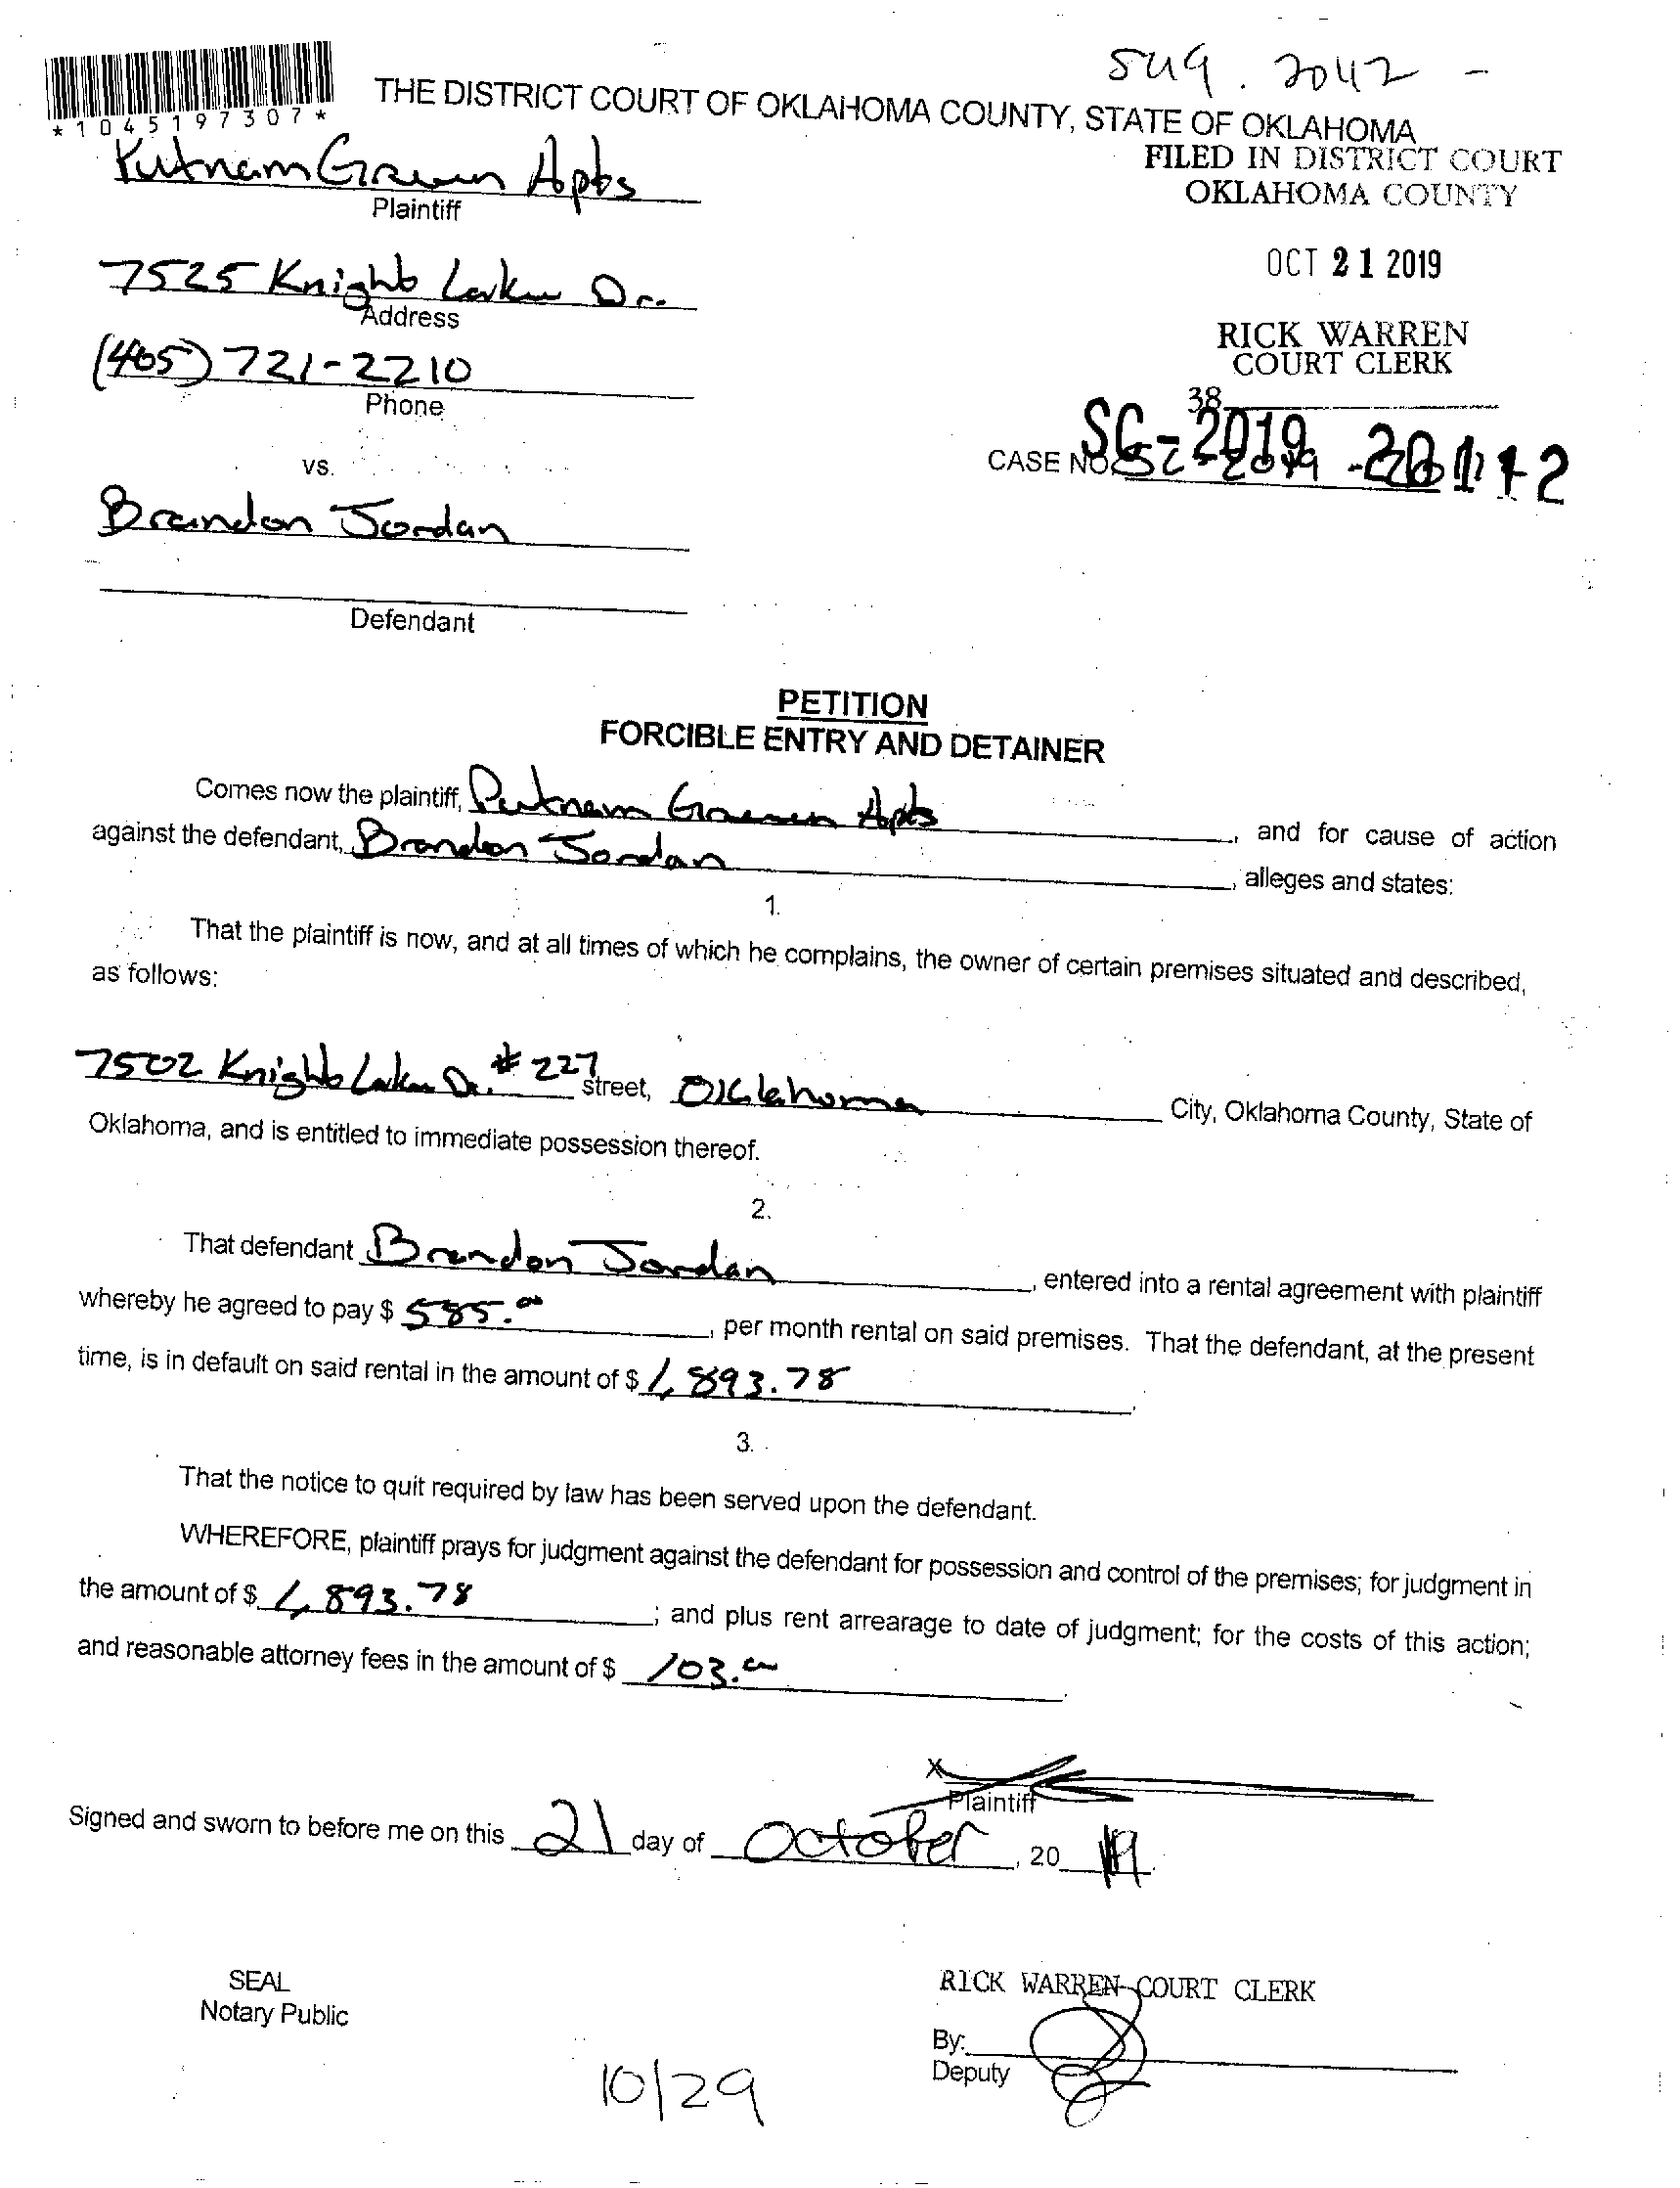 549.2042 -
*1045197307*
THE DISTRICT COURT OF OKLAHOMA COUNTY, STATE OF OKLAHOMA
FILED IN DISTRICT COURT
OKLAHOMA COUNTY
Putnam Green Apts
Plaintiff
OCT 21 2019
7525 Knight Lake Dr.
Address
RICK WARREN
COURT CLERK
(405) 721-2210
Phone
38
CASE NO. SC-2019
vs.
Brandon Jordan
Defendant
PETITION
FORCIBLE ENTRY AND DETAINER
Comes now the plaintiff, Putnam Green Apts , and for cause of action
against the defendant, Brandon Jordan , alleges and states:
1.
That the plaintiff is now, and at all times of which he complains, the owner of certain premises situated and described,
as follows:
7502 Knight Lake Dr. # 227 street, Oklahoma City, Oklahoma County, State of
Oklahoma, and is entitled to immediate possession thereof.
2.
That defendant Brandon Jordan , entered into a rental agreement with plaintiff
whereby he agreed to pay $ 585.00 , per month rental on said premises. That the defendant, at the present
time, is in default on said rental in the amount of $ 1,893.78 .
3.
That the notice to quit required by law has been served upon the defendant.
WHEREFORE, plaintiff prays for judgment against the defendant for possession and control of the premises; for judgment in
the amount of $ 1,893.78 ; and plus rent arrearage to date of judgment; for the costs of this action;
and reasonable attorney fees in the amount of $ 103.00 .
X
Plaintiff
Signed and sworn to before me on this 21 day of October , 20 19 .
SEAL
Notary Public
RICK WARREN-COURT CLERK
By:
Deputy
10/29